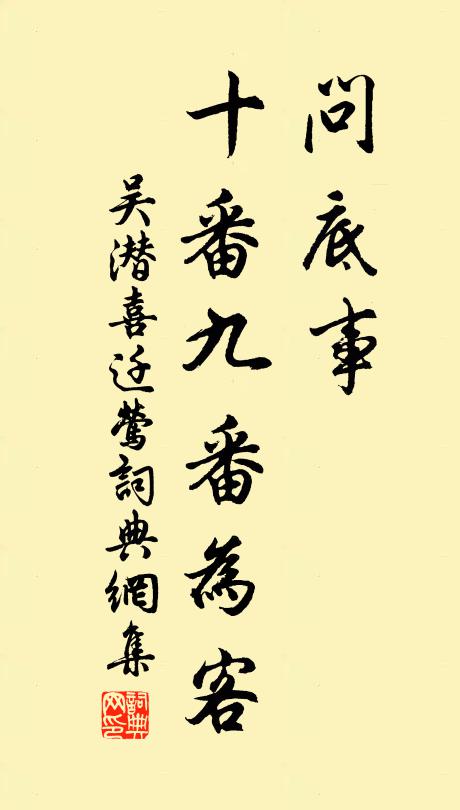 問底事
十番九番為客
吴潜喜迁鶯詞典網集
詞典网印